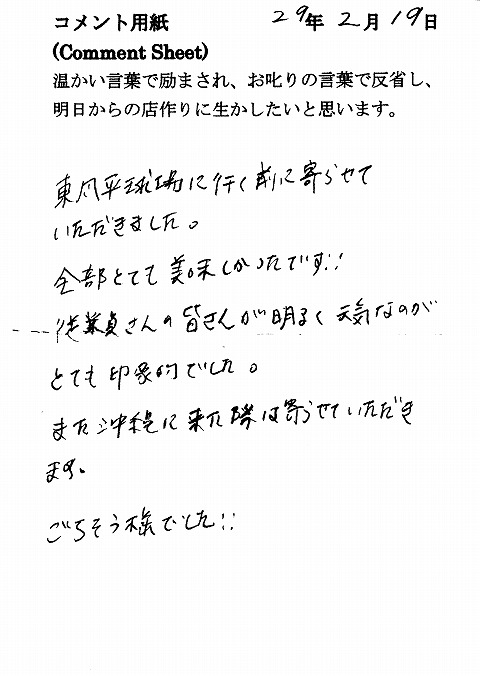 コメント用紙 29年2月19日
(Comment Sheet)
温かい言葉で励まされ、お叱りの言葉で反省し、
明日からの店作りに生かしたいと思います。
東風平球場に行く前に寄らせて
いただきました。
全部とても美味しかったです!!
従業員さんの皆さんが明るく元気なのが
とても印象的でした。
また沖縄に来た際は寄らせていただき
ます。
ごちそう様でした!!